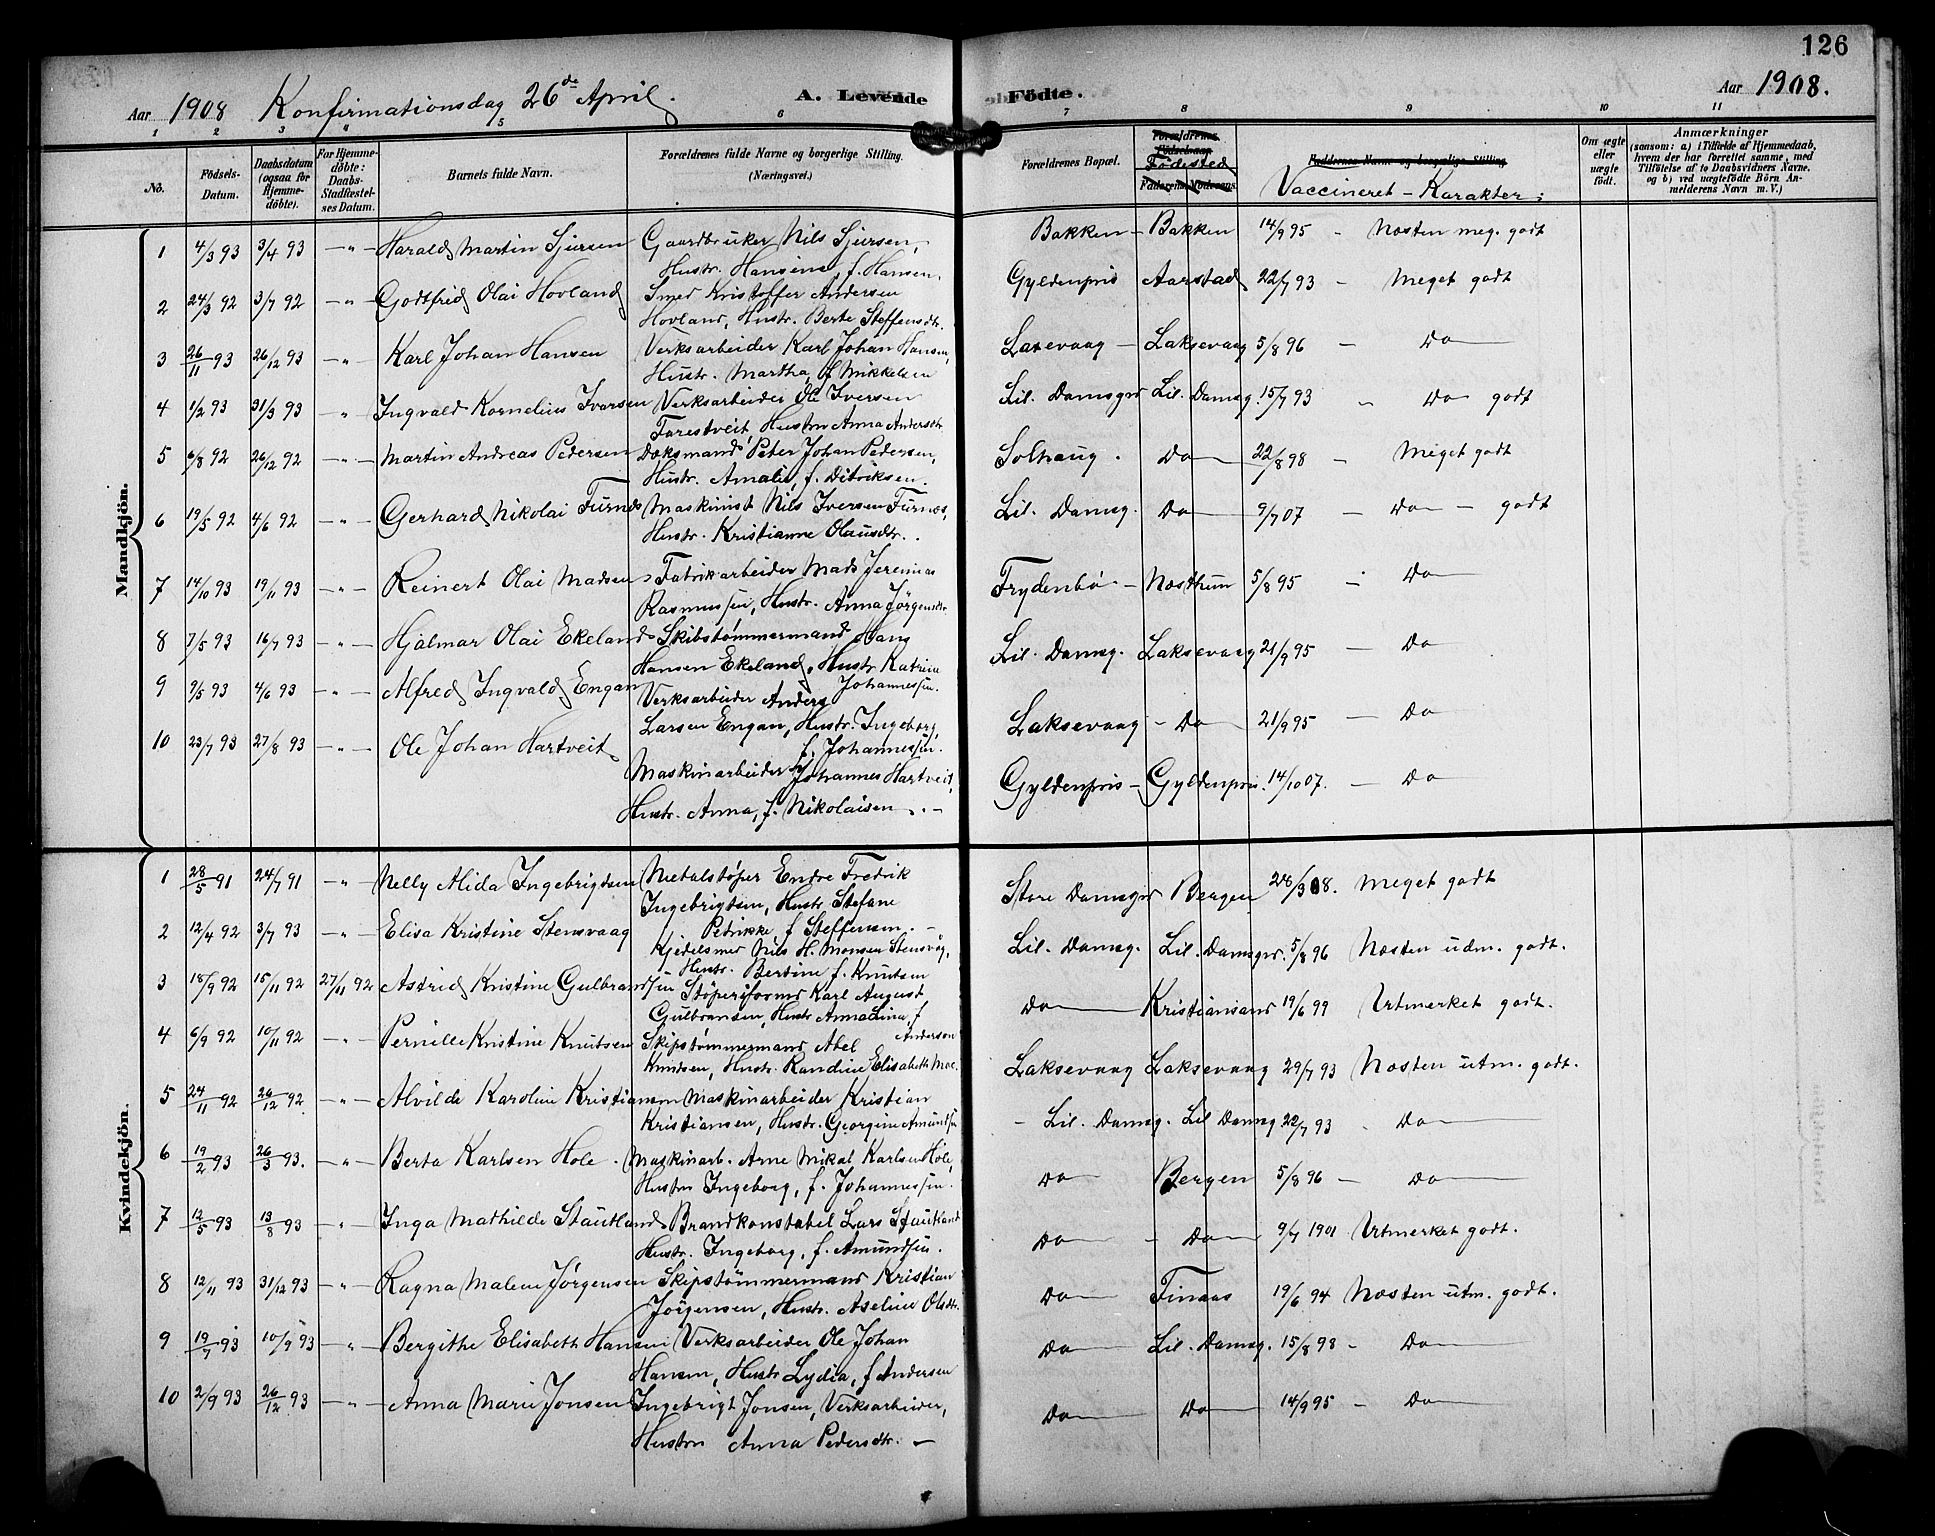 126
Aar 1908 Konfirmationsdag 26de April. A. Levende Födte. Aar 1908.
1 2 3 4 5 6 7 8 9 10 11
No. Födsels-Datum. Daabsdatum (ogsaa for Hjemme-döbte). For Hjemme-döbte: Daabs-Stadfæstel-ses Datum. Barnets fulde Navn. Forældrenes fulde Navne og borgerlige Stilling. (Næringsvei.) Forældrenes Bopæl. Forældrenes Födselsaar Födested Faderens Moderens Faddernes Navne og borgerlige Stilling Vaccineret – Karakter: Om ægte eller uægte födt. Anmærkninger (saasom: a) i Tilfælde af Hjemmedaab, hvem der har forrettet samme, med Tilföielse af to Daabsvidners Navne, og b) ved uægtefödte Börn An-melderens Navn m. V.)
Mandkjön.
1 4/3 93 3/4 93 – " – Harald Martin Sjursen Gaardbruker Nils Sjursen, Bakken – Bakken 14/9 95 – Næsten meg. godt
Hustr. Hansine, f. Hansen.
2 24/3 92 3/7 92 – " – Godtfrid Olai Hovland Smed Kristoffer Andersen Gyldenpris Aarstad 22/7 93 – Meget godt
Hovland, Hustr. Berte Steffensdtr.
3 26/11 93 26/12 93 – " Karl Johan Hansen Verksarbeider Karl Johan Hansen, Laxevaag – Laksevaag 5/8 96 – Do
Hustr. Martha, f Mikkelsen
4 1/2 93 31/3 93 " Ingvald Kornelius Iversen Verksarbeider Ole Iversen Lil. Damsgrd Lil. Damsg. 15/7 93 " Do godt
Farestveit, Hustru Anna Andersdtr.
5 6/8 92 26/12 92 – " – Martin Andreas Pedersen Doksmand Peter Johan Pedersen, Solhaug. Do 22/8 98 – Meget godt
Hustr. Amalie, f. Ditriksen.
6 19/5 92 4/6 92 – " – Gerhard Nikolai Furnes Maskinist Nils Iversen Furnes, Lil. Damsg. Do 9/7 07 – Do – godt
Hustr. Kristianne Olausdtr.
7 14/10 93 19/11 93 – " – Reinert Olai Madsen Fabrikarbeider Mads Jeremias Frydenbö – Nosthun 5/8 95 – Do
Rasmussen, Hustr. Anna Jörgensdtr.
8 7/5 93 16/7 93 – " – Hjalmar Olai Ekeland Skibstømmermand Hans Lil. Damsg. Laksevaag 21/9 95 – Do
Hansen Ekeland, Hustr Katrina
Johannessen.
9 9/5 93 4/6 93 – " – Alfred Ingvald Engan Verksarbeider Anders Laksevaag – Do 21/9 95 – Do
Larsen Engan, Hustr. Ingeborg,
f. Johannessen.
10 23/7 93 27/8 93 – " – Ole Johan Hartveit Maskinarbeider Johannes Hartveit, Gyldenpris – Gyldenpris. 14/10 07. – Do
Hustr. Anna, f. Nikolaisen. –
Kvindekjön.
1 28/5 91 24/7 91 – " – Nelly Alida Ingebrigtsen Metalstøper Endre Fredrik Store Damsgrd Bergen 28/3 08. Meget godt
Ingebrigtsen, Hustr Stefane
Petrikke, f Steffensen. –
2 12/4 92 3/7 93 – " – Elisa Kristine Stensvaag Kjedelsmed Nils H. Monsen Stensvåg, Lil. Damsg. Lil. Damsgrd. 5/8 96 Næsten udm. godt.
Hustr. Bertine f. Knutsen
3 18/9 92 15/11 92 27/11 92 Astrid Kristine Gulbrandsen Støperiformd Karl August Do Kristiansand 19/6 99 Utmerket godt.
Gulbransen, Hustr Anna Lina, f
Anderson
4 6/9 92 10/11 92 – " – Pernille Kristine Knutsen Skipstømmermand Abel Laksevaag Laksevaag 29/7 93 Næsten utm. godt.
Knudsen, Hustr. Randine Elisabeth Moe.
5 24/11 92 26/12 92 – " – Alvilde Karoline Kristiansen Maskinarbeider Kristian – Lil. Damsg. Lil Damsg 22/7 93 – Do
Kristiansen, Hustr. Georgine Amundsen
6 19/2 93 26/3 93. – " – Berta Karlsen Hole. Maskinarb. Arne Mikal Karlsen Hole, Do Bergen 5/8 96 – Do
Hustru Ingeborg, f. Johannessen.
7 12/5 93 13/8 93 – " – Inga Mathilde Stautland Brandkonstabel Lars Stautland Do – Do 9/7 1901 Utmerket godt.
Hustr. Ingeborg, f. Amundsen.
8 12/11 93 31/12 93 – " Ragna Malene Jørgensen Skipstømmermand Kristian Do Finaas 19/6 94 Næsten utm. godt.
Jørgensen, Hustr. Aseline Olsdtr.
9 19/7 93 10/9 93 – " – Bergithe Elisabeth Hansen Verksarbeider Ole Johan Do Lil. Damsg. 15/8 98 – Do
Hansen, Hustr Lydia, f Andersen
10 2/9 93 26/12 93 – " – Anna Marie Jonsen Ingebrigt Jonsen, Verksarbeider, Do Do 14/9 95 – Do
Hustru Anna Pedersdtr. –